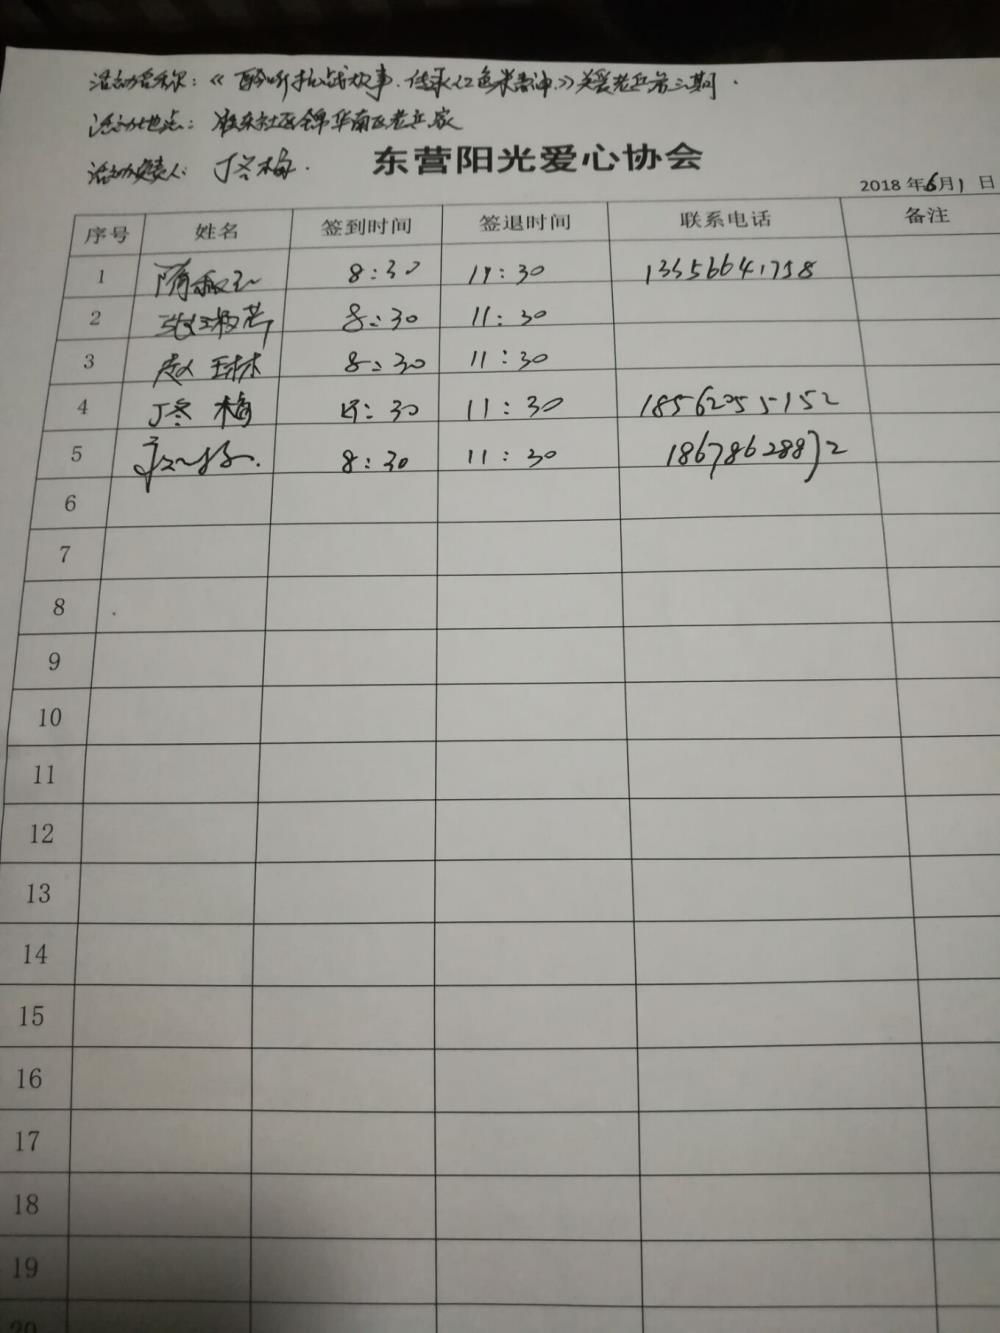 活动名称:《聆听抗战故事.传承红色精神》关爱老兵第三期.
活动地点: 社区锦华南区老兵家
活动负责人: 丁冬梅.
东营阳光爱心协会
2018年6月1日
序号 姓名 签到时间 签退时间 联系电话 备注
1 8:30 11:30
2 8:30 11:30
3 赵玉林 8:30 11:30
4 丁冬梅 8:30 11:30 18562055152
5 8:30 11:30 18678628872
6
7
8
9
10
11
12
13
14
15
16
17
18
19
20